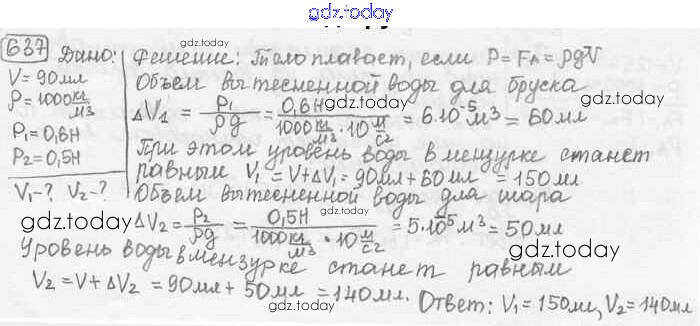 gdz.today
637 Дано:
V = 90 мл
ρ = 1000 кг/м3
P1 = 0,6Н
P2 = 0,5Н
V1 - ? V2 - ?
Решение: Тело плавает, если P = FA = ρgV
Объем вытесненной воды для бруска
ΔV1 = P1/ρg = 0,6Н/(1000 кг/м3 · 10 м/с2) = 6·10^-5 м3 = 60 мл
При этом уровень воды в мензурке станет
равным V1 = V + ΔV1 = 90 мл + 60 мл = 150 мл
Объем вытесненной воды для шара
ΔV2 = P2/ρg = 0,5Н/(1000 кг/м3 · 10 м/с2) = 5·10^5 м3 = 50 мл
Уровень воды в мензурке станет равным
V2 = V + ΔV2 = 90 мл + 50 мл = 140 мл.
Ответ: V1 = 150 мл, V2 = 140 мл
gdz.today
gdz.today
gdz.today
gdz.today
gdz.today
gdz.today
gdz.today